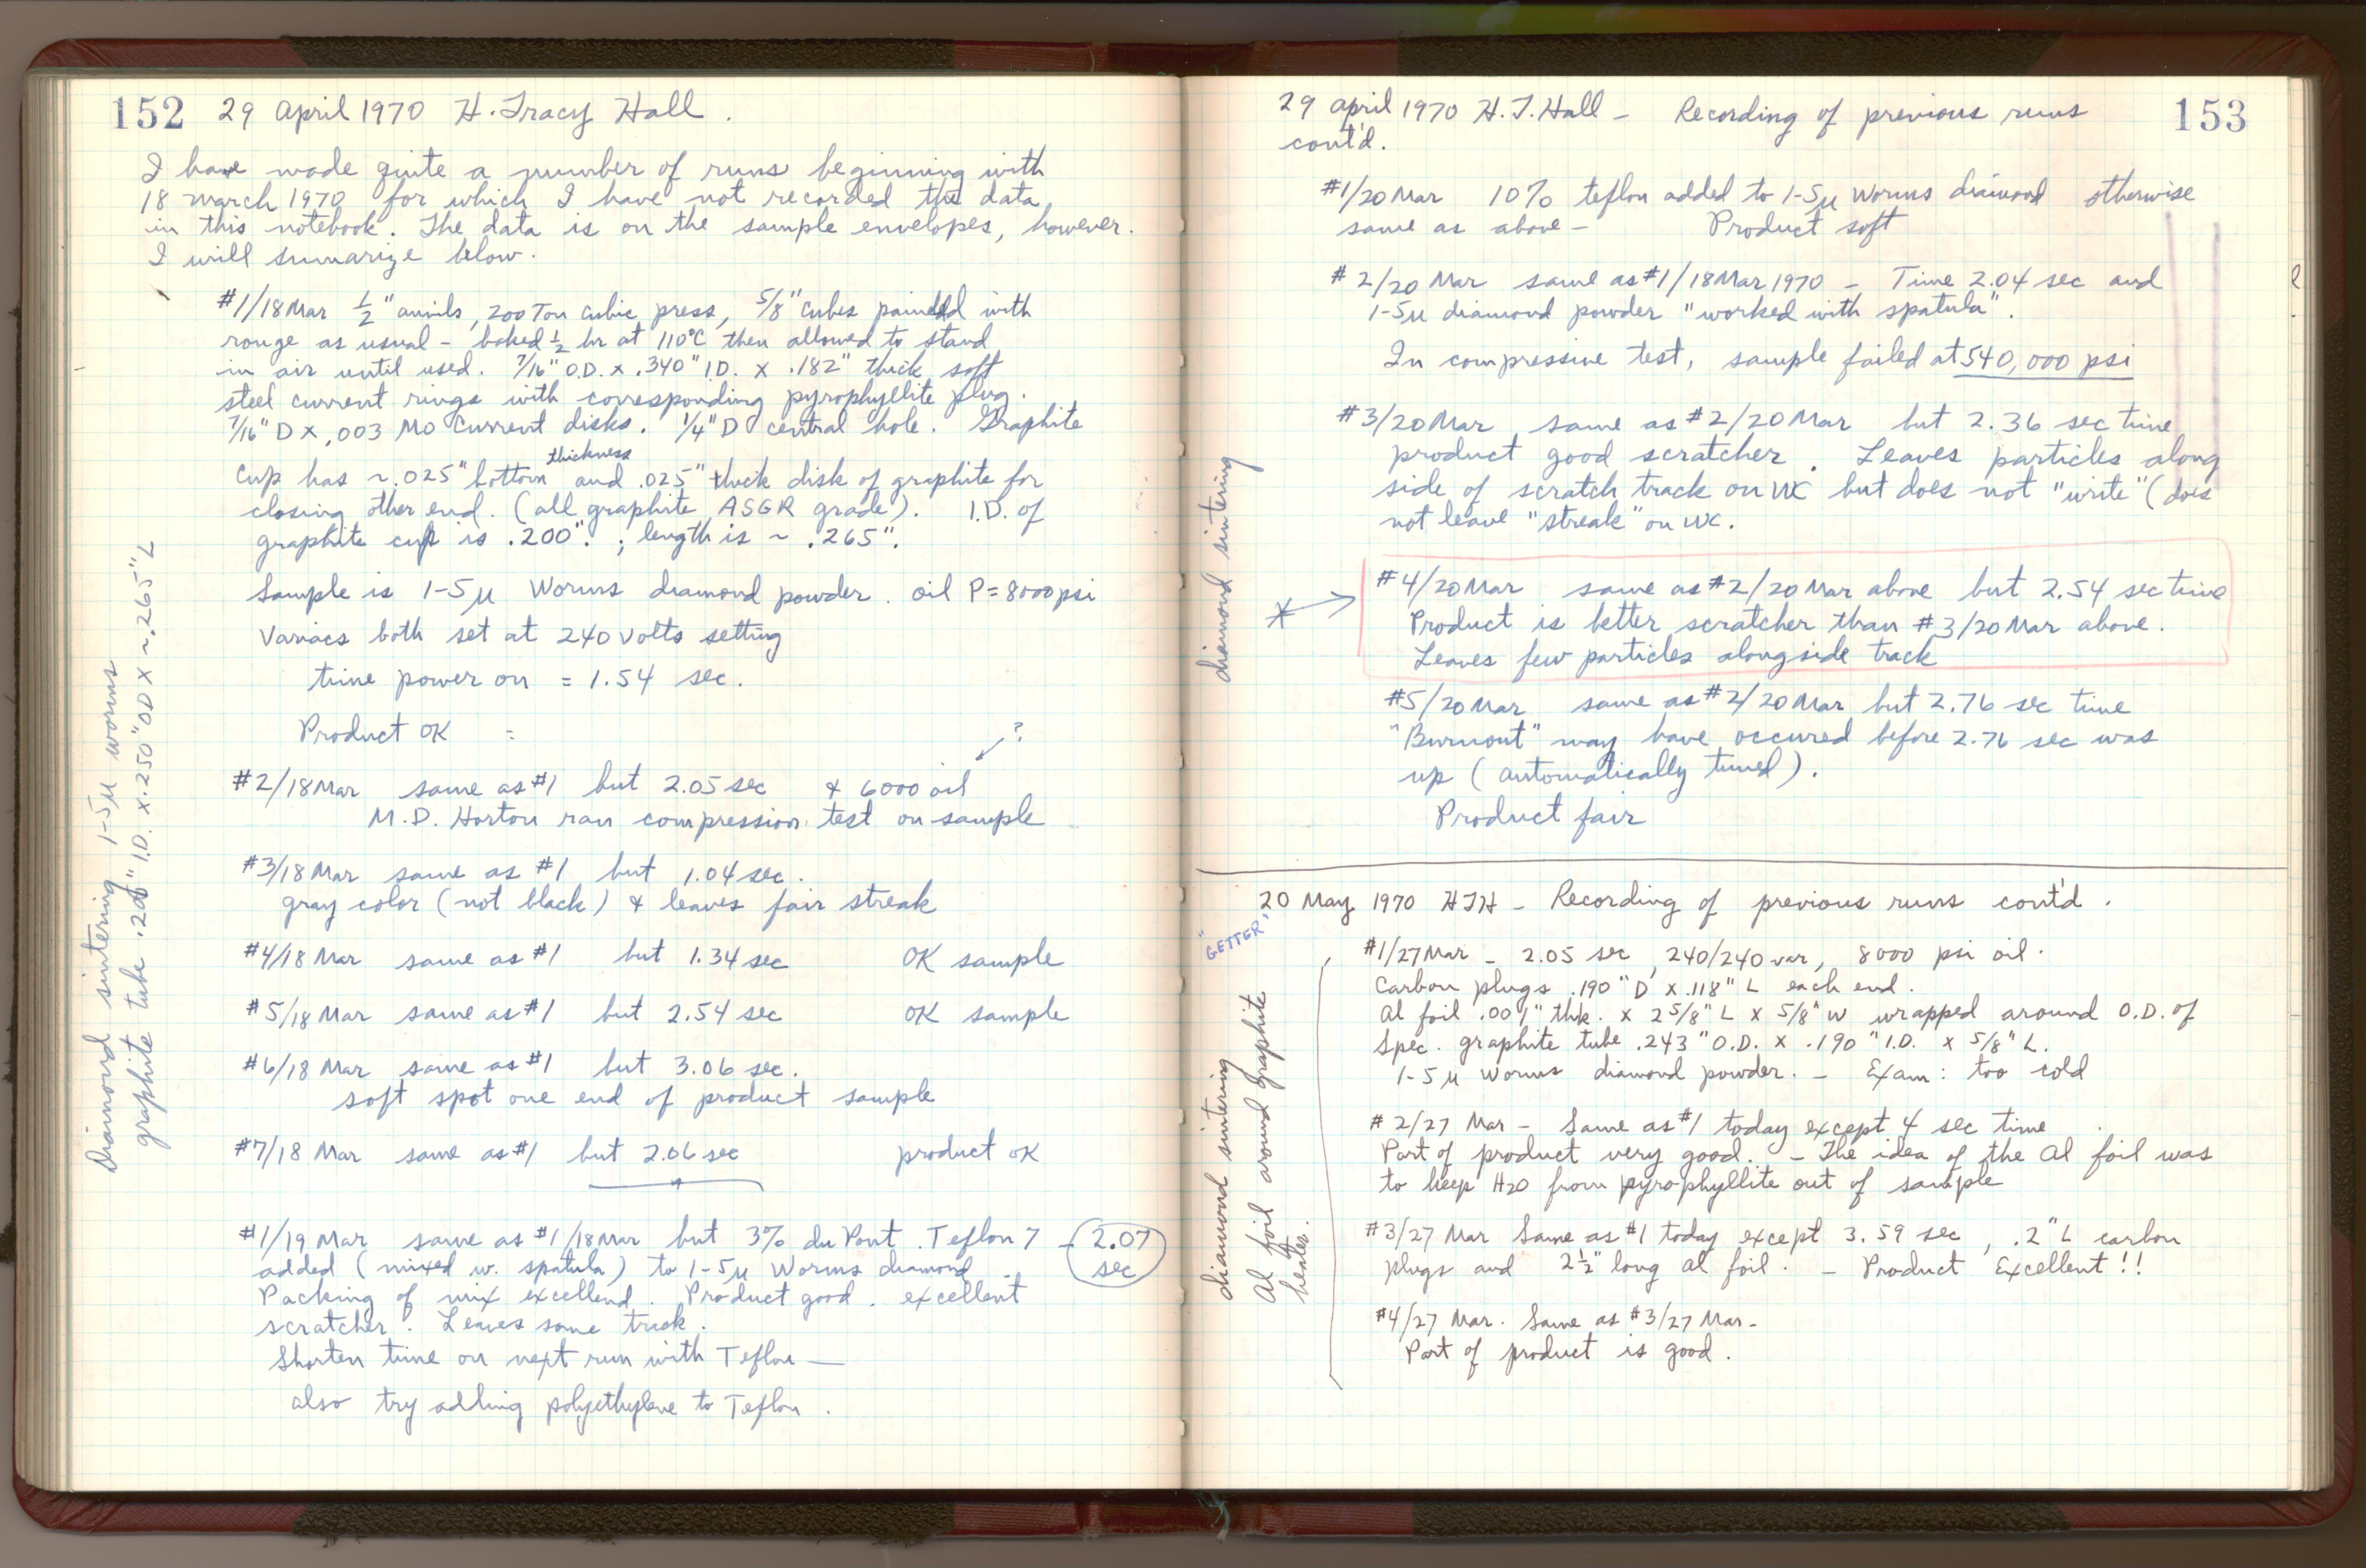 152 29 April 1970 H. Tracy Hall.
I have made quite a number of runs beginning with
18 March 1970 for which I have not recorded the data
in this notebook. The data is on the sample envelopes, however.
I will sumarize below.
#1/18 Mar 1/2" anvils, 200 Ton cubic press, 5/8" cubes painted with
rouge as usual - baked 1/2 hr at 110°C then allowed to stand
in air until used. 7/16" O.D. x .340" I.D. x .182" thick soft
steel current rings with corresponding pyrophyllite plug.
7/16" D x .003 Mo current disks. 1/4" D central hole. Graphite
thickness
cup has ~.025" bottom and .025" thick disk of graphite for
closing other end. (all graphite ASGR grade). I.D. of
graphite cup is .200". ; length is ~ .265".
Sample is 1-5µ Worms diamond powder. oil P = 8000 psi
Variacs both set at 240 volts setting
time power on = 1.54 sec.
Product OK =
?
#2/18 Mar same as #1 but 2.05 sec & 6000 oil
M.D. Horton ran compression test on sample
#3/18 Mar same as #1 but 1.04 sec.
gray color (not black) & leaves fair streak
#4/18 Mar same as #1 but 1.34 sec OK sample
#5/18 Mar same as #1 but 2.54 sec OK sample
#6/18 Mar same as #1 but 3.06 sec.
soft spot one end of product sample
#7/18 Mar same as #1 but 2.06 sec product OK
#1/19 Mar same as #1/18 Mar but 3% du Pont Teflon 7 - 2.07
added (mixed w. spatula) to 1-5µ Worms diamond sec
Packing of mix excellend. Product good. excellent
scratcher. Leaves some track.
Shorten time on next run with Teflon —
also try adding polyethylene to Teflon.
Diamond sintering 1-5µ worms
graphite tube .200" I.D. x .250" OD x ~.265" L
29 April 1970 H.T. Hall - Recording of previous runs 153
cont'd.
#1/20 Mar 10% teflon added to 1-5µ Worms diamond otherwise
same as above - Product soft
#2/20 Mar same as #1/18 Mar 1970 - Time 2.04 sec and
1-5µ diamond powder "worked with spatula".
In compressive test, sample failed at 540,000 psi
#3/20 Mar same as #2/20 Mar but 2.36 sec time
product good scratcher. Leaves particles along
side of scratch track on WC but does not "write" (does
not leave "streak" on WC.
#4/20 Mar same as #2/20 Mar above but 2.54 sec time
Product is better scratcher than #3/20 Mar above.
Leaves few particles alongside track
#5/20 Mar same as #2/20 Mar but 2.76 sec time
"Burnout" may have occured before 2.76 sec was
up (automatically timed).
Product fair
diamond sintering
20 May 1970 HTH - Recording of previous runs cont'd.
"GETTER"
#1/27 Mar - 2.05 sec, 240/240 var, 8000 psi oil.
Carbon plugs .190" D x .118" L each end.
Al foil .001" thk. x 2 5/8" L x 5/8" W wrapped around O.D. of
Spec. graphite tube .243" O.D. x .190" I.D. x 5/8" L.
1-5µ Worms diamond powder. - Exam: too cold
#2/27 Mar - Same as #1 today except 4 sec time
Part of product very good. - The idea of the Al foil was
to keep H2O from pyrophyllite out of sample
#3/27 Mar Same as #1 today except 3.59 sec, .2" L carbon
plugs and 2 1/2" long Al foil. - Product Excellent!!
#4/27 Mar. Same as #3/27 Mar -
Part of product is good.
diamond sintering
Al foil around graphite
heater.